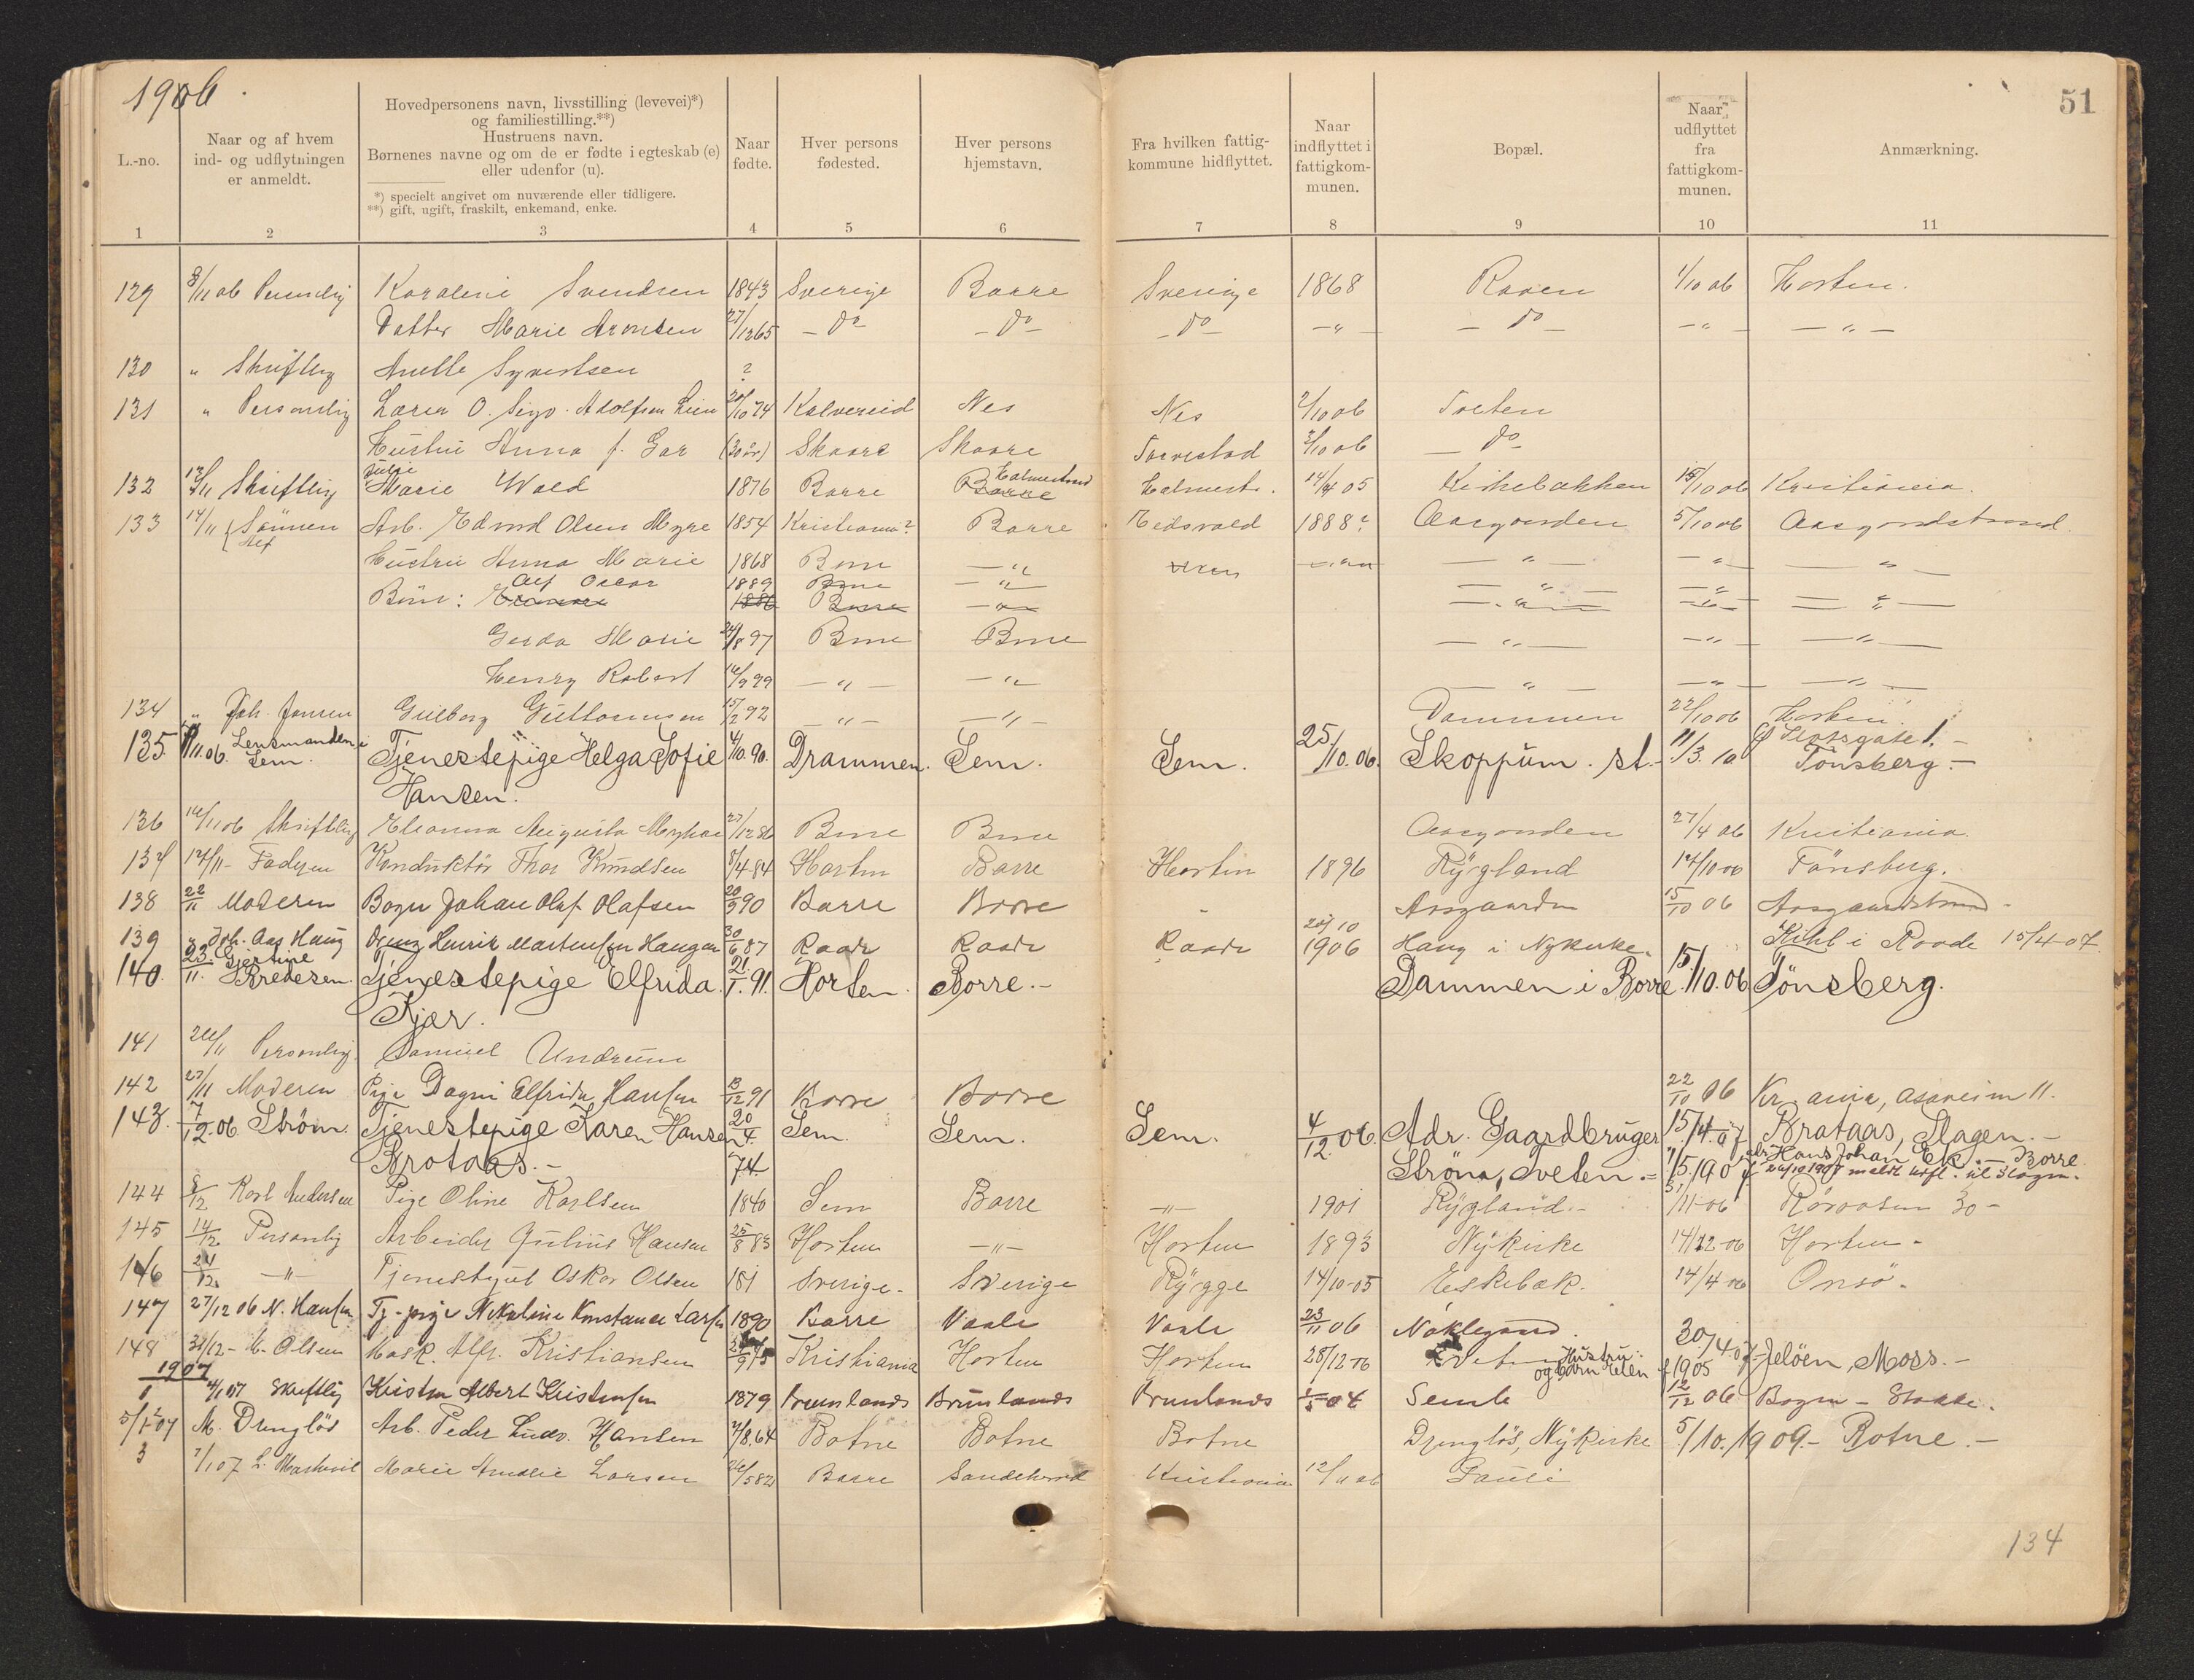 1906.
51
L.-no.
Naar og af hvem
ind- og udflytningen
er anmeldt.
Hovedpersonens navn, livsstilling (levevei)*)
og familiestilling.**)
Hustruens navn.
Børnenes navne og om de er fødte i egteskab (e)
eller udenfor (u).
*) specielt angivet om nuværende eller tidligere.
**) gift, ugift, fraskilt, enkemand, enke.
Naar
fødte.
Hver persons
fødested.
Hver persons
hjemstavn.
Fra hvilken fattig-
kommune hidflyttet.
Naar
indflyttet i
fattigkom-
munen.
Bopæl.
Naar
udflyttet
fra
fattigkom-
munen.
Anmærkning.
1 2 3 4 5 6 7 8 9 10 11
129 8/11 06 Personlig Karoline Svendsen 1843 Sverige Borre Sverige 1868 Raaen 1/10 06 Horten.
Datter Marie Aronsen 27/12 65 - do - - do - - do - - " - - do - - " - - " -
130 " Skriftlig Anette Syvertsen ?
131 " Personlig Lærer O. Sigv. Adolfsen Lien 20/10 74 Kalvereid Nes Nes 2/10 06 Tveten
Hustru Anna f. Gar (30 år) Skaare Skaare Torvestad 2/10 06 - do
132 13/11 Skriftlig Julie Marie Wold 1876 Borre Borre Holmestrand Holmestr. 14/4 05 Kirkebakken 15/10 06 Kristiania.
133 14/11 Sønnen Alf Arb. Edvard Olsen Myre 1854 Kristiania? Borre Eidsvold 1888? Aasgaarden 5/10 06 Aasgaardstrand
Hustru Anna Marie 1868 Borre - " - - " - - " - - " -
Alf Oscar 1889 Borre - " - - " - - " - - " -
Børn: 1886 Borre - " - - " - - " - - " -
Gerda Marie 24/8 97 Borre Borre - " - - " - - " -
Henry Robert 16/9 99 - " - - " - - " - - " - - " -
134 " Joh. Jensen Gulborg Guttormsen 15/2 92 - " - - " - Dammen 22/10 06 Horten.
135 9/11.06. Lensmanden i Sem. Tjenestepige Helga Sofie 4/10.90. Drammen. Sem. Sem. 25/10.06. Skoppum. st.- 11/3. 10 Slotsgate 1.-
Hansen. Tønsberg.-
136 16/11 06 Skriftlig Eleanna Augusta Myhre 27/12 86 Borre Borre Aasgaarden 27/4 06 Kristiania.
137 17/11- Faderen Konduktør Thor Knudsen 8/4 84 Horten Borre Horten 1896 Rygland 17/10 06 Tønsberg.
138 22/11 Moderen Bager Johan Olaf Olafsen 20/9 90 Borre Borre - Aasgaarden 15/10 06 Aasgaardstrand -
139 " Joh. Aas Haug Dreng Henrik Martensen Haugen 30/6 87 Raade Raade Raade 20/10 1906 Haug i Nykirke. Kihl i Raade 15/4-07
140. 23/11. Gjertine Bredesen. Tjenestepige Elfrida 21/1.91. Horten. Borre.- Dammen i Borre. 15/10.06 Tønsberg.
Kjær.
141 26/11 Personlig Samuel Undrum
142 27/11 Moderen Pige Dagni Elfrida Hansen 13/12 91 Borre Borre 22/10 06 Kr.ania, 11.
143. 7/12.06. Strøm. Tjenestepige Karen Hansen 20/4. Sem. Sem. Sem. 4/12.06. Adr. Gaardbruger 15/4.07 Brataas, Slagen.-
Brotaas.- 74 Strøm, Tveten.- 1/5.1907 Hans Johan Ek - Borre.
26/10 1907 meldt utfl. til Slagen.
144 8/12 Karl Andersen Pige Oline Karlsen 1840 Sem Borre - " - 1901 Rygland - 3/11-06 Røraasen 30 -
145 14/12 Personlig Arbeider Julius Hansen 25/8 83 Horten - " - Horten 1893 Nykirke 14/12-06 Horten -
146 24/12 - " - Tjenestegut Oskar Olsen Sverige - Sverige Rygge 14/10-05 Eskebæk. 14/4-06 Onsø -
147 27/12 06 N. Hansen Tj-pige Nikoline Konstance Larsen 1890 Borre Vaale Vaale 23/11 06 Nøklegaard.
148 31/12- M. Olsen Mask. Alfr. Kristiansen Kristiania Horten Horten 28/12-06 30/4 07 Jeløen, Moss.-
Hustru
og barn 1905
1907
1 4/1 07 Skriftlig Kristen Albert Kristensen 1879 Brunlanes Brunlanes Brunlanes 04 Semb 12/12 06 Bogen - Stokke.
2 5/1-07 M. Dringløs Arb. Peder Ludv. Hansen 4/8.64 Botne Botne Botne Dringløs, Nykirke 5/10.1909.- Botne.-
3 7/1 07 L. Marie Amalie Larsen 26/5 82 Borre Sandeherred Kristiania 12/11 06 Pauli
134